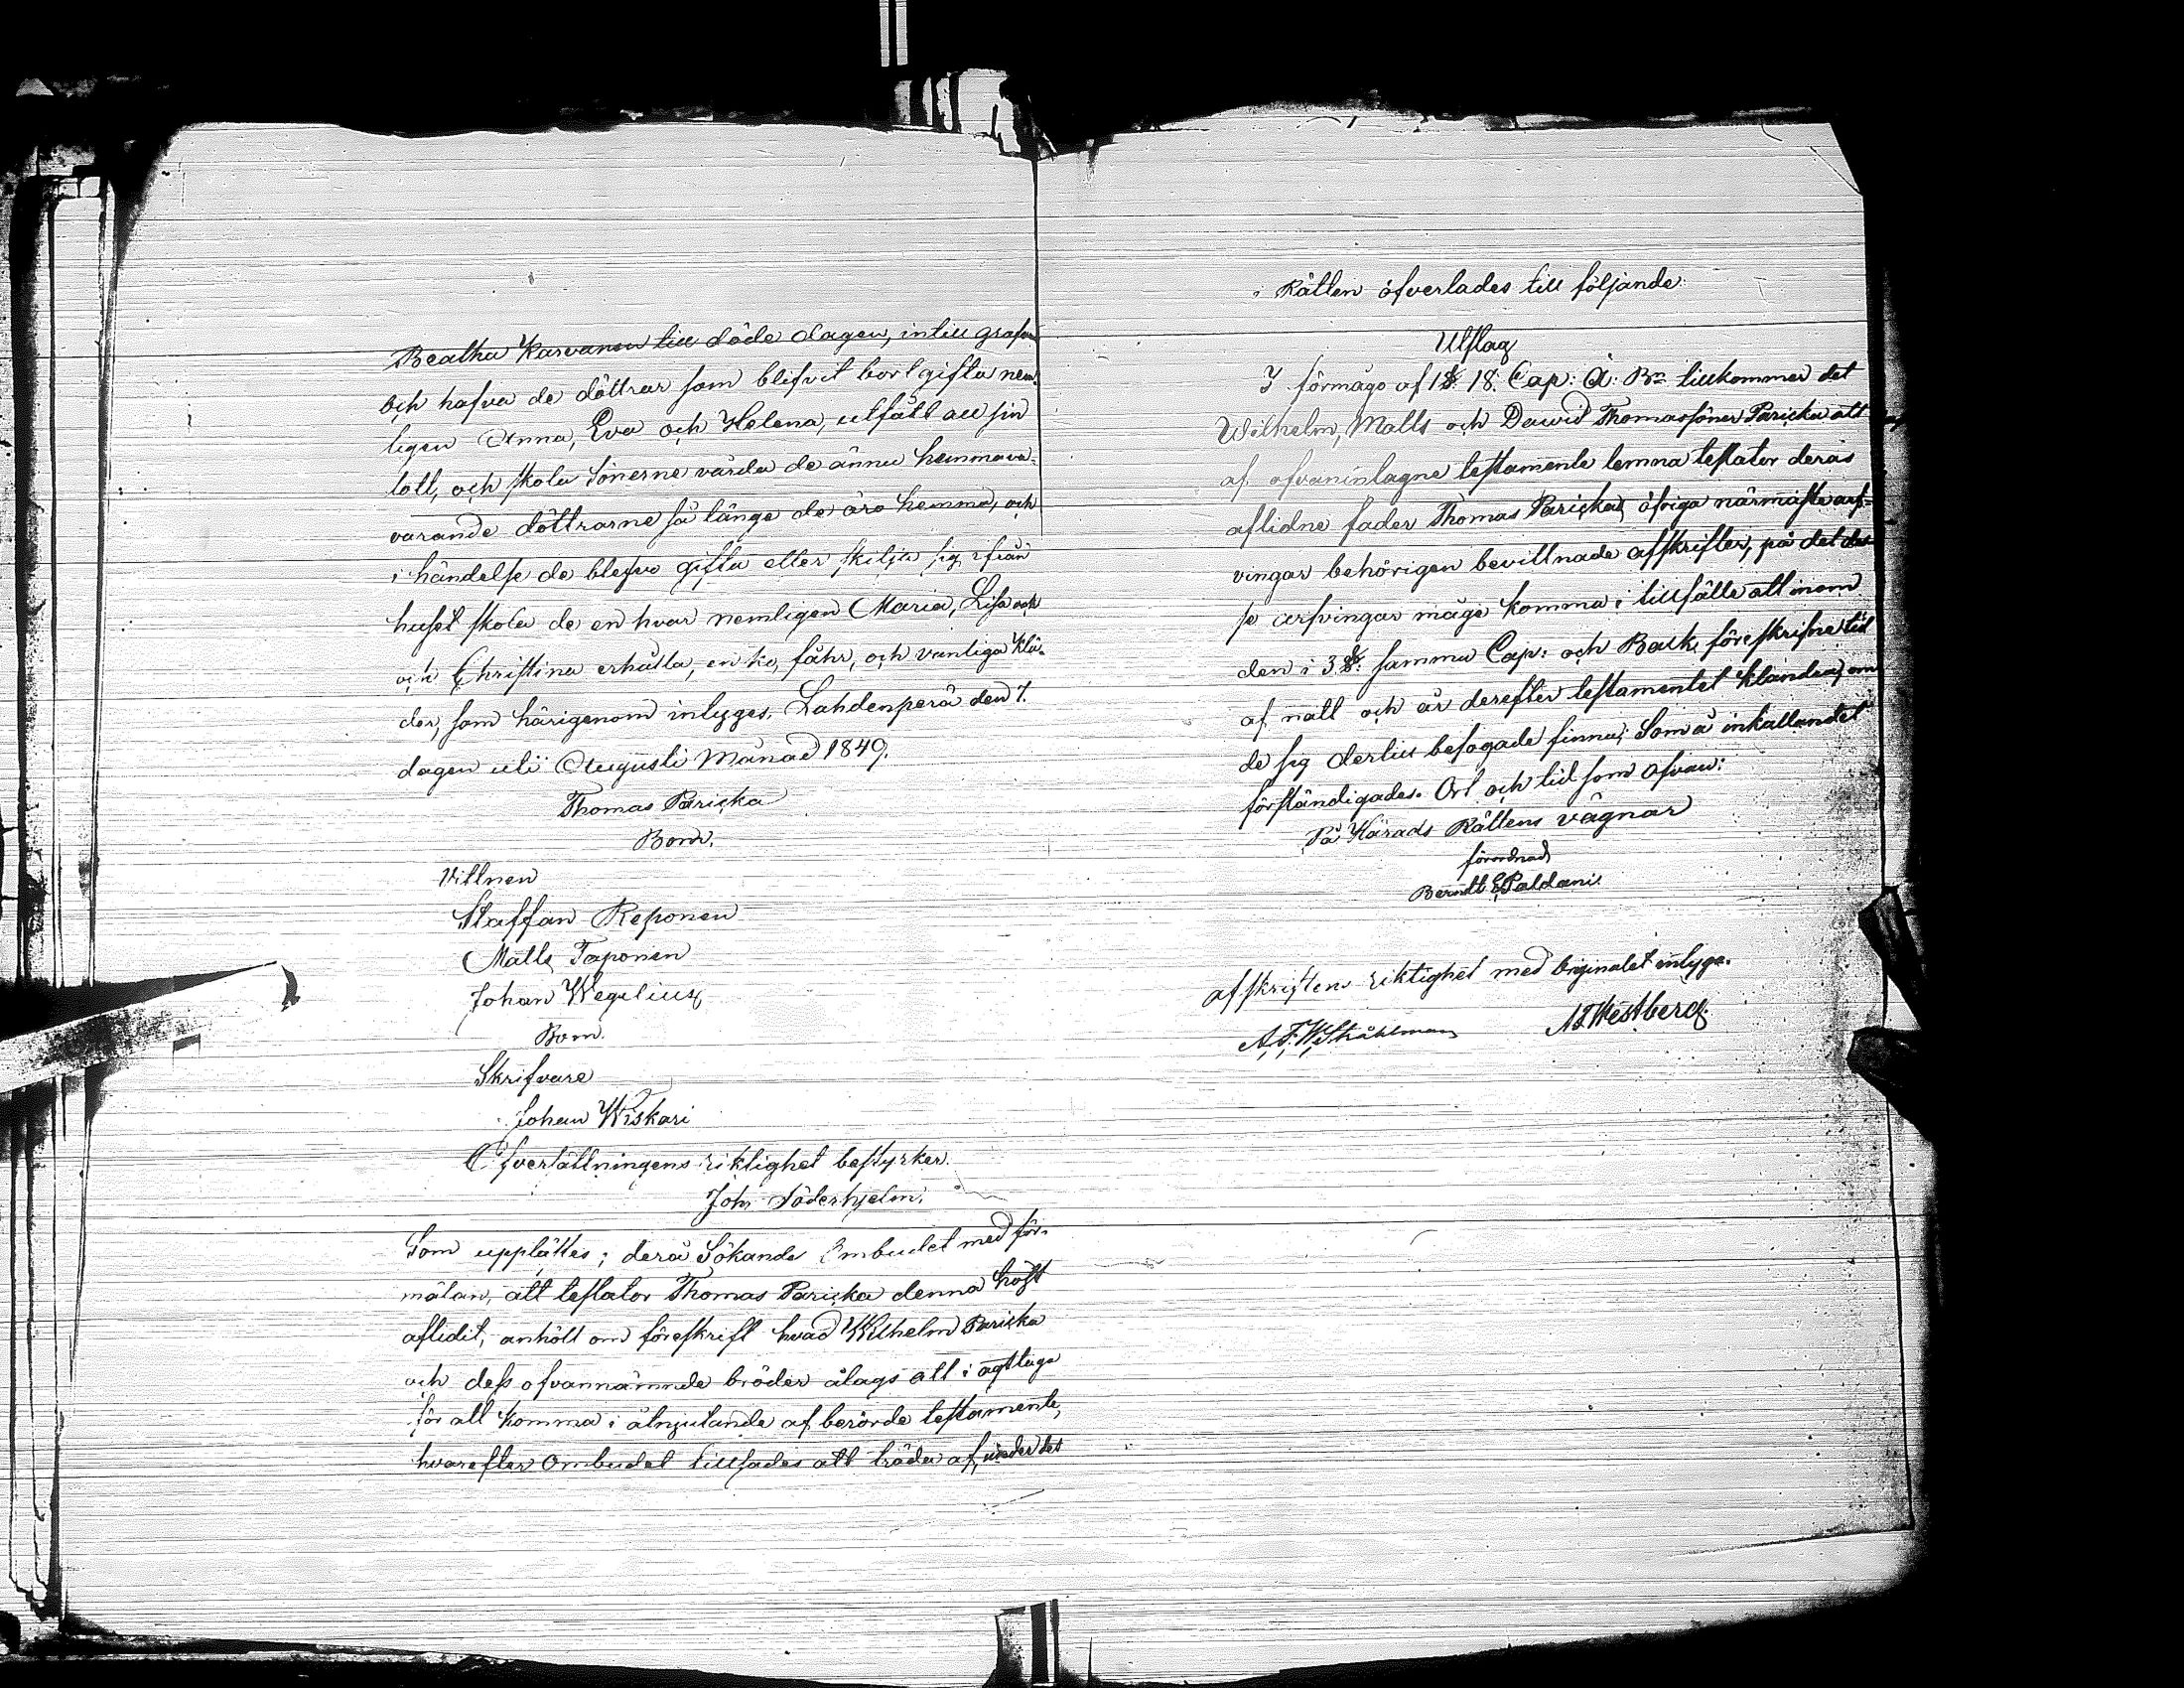 Beatha Karvanen till döde dagen, intill grafven
och hafva de döttrar som blifvit bortgifta nem¬
ligen Anna, Eva och Helena, utfått all sin
lott, och skola Sönerne vårda de ännu hemmava¬
varande döttrarne så länge de äro hemma, och
i händelse de blefvo gifta eller skilja sig ifrån
huset skola de en hvar nemligen Maria, Lisa och
och Christina erhålla, en ko, fåhr, och vanliga klä¬
der, som härigenom intygges. Lahdenperä den 7.
dagen uti Augusti Månad 1849.
Thomas Paricka
Bom.
Vittnen
Staffan Reponen
Matts Taponen
Johan Wegelius
Bom.
Skrifvare
Johan Wiskari
Öfversättningens riktighet bestyrker.
Joh Söderhjelm.
Som upplästes; derå Sökande Ombudet med för¬
mälan, att testator Thomas Paricka denna höst
aflidit, anhöll om föreskrift hvad Wilhelm Paricka
och dess ofvannämnde bröder ålags att i agttaga
för att komma i åtnjutande af berörde testamente,
hvarefter Ombudet tillsades att träda af, under det
i Rätten öfverlades till följande:
Utslag
I förmågo af 1 §. 18. Cap: Ä: Bn tillkommer det
Wilhelm, Matts och Dawid Thomassöner Paricka att
af ofvanintagne testamente lemna testator deras
aflidne fader Thomas Parickas öfriga närmaste arf¬
vingar behörigen bevittnade afskrifter, på det des¬
se arfvingar måge komma i tillfälle att inom
den i 3 §: samma Cap: och Balk föreskrifne tid
af natt och år derefter testamentet klandra, om
de sig dertill befogade finna; Som å inkallandet
förständigades. Ort och tid som ofvan:
På Härads Rättens vägnar
förordnad
Berndt E Paldani
afskriftens riktighet med Originalet intyga.
A. F. W. Ståhlman A F Westberg.